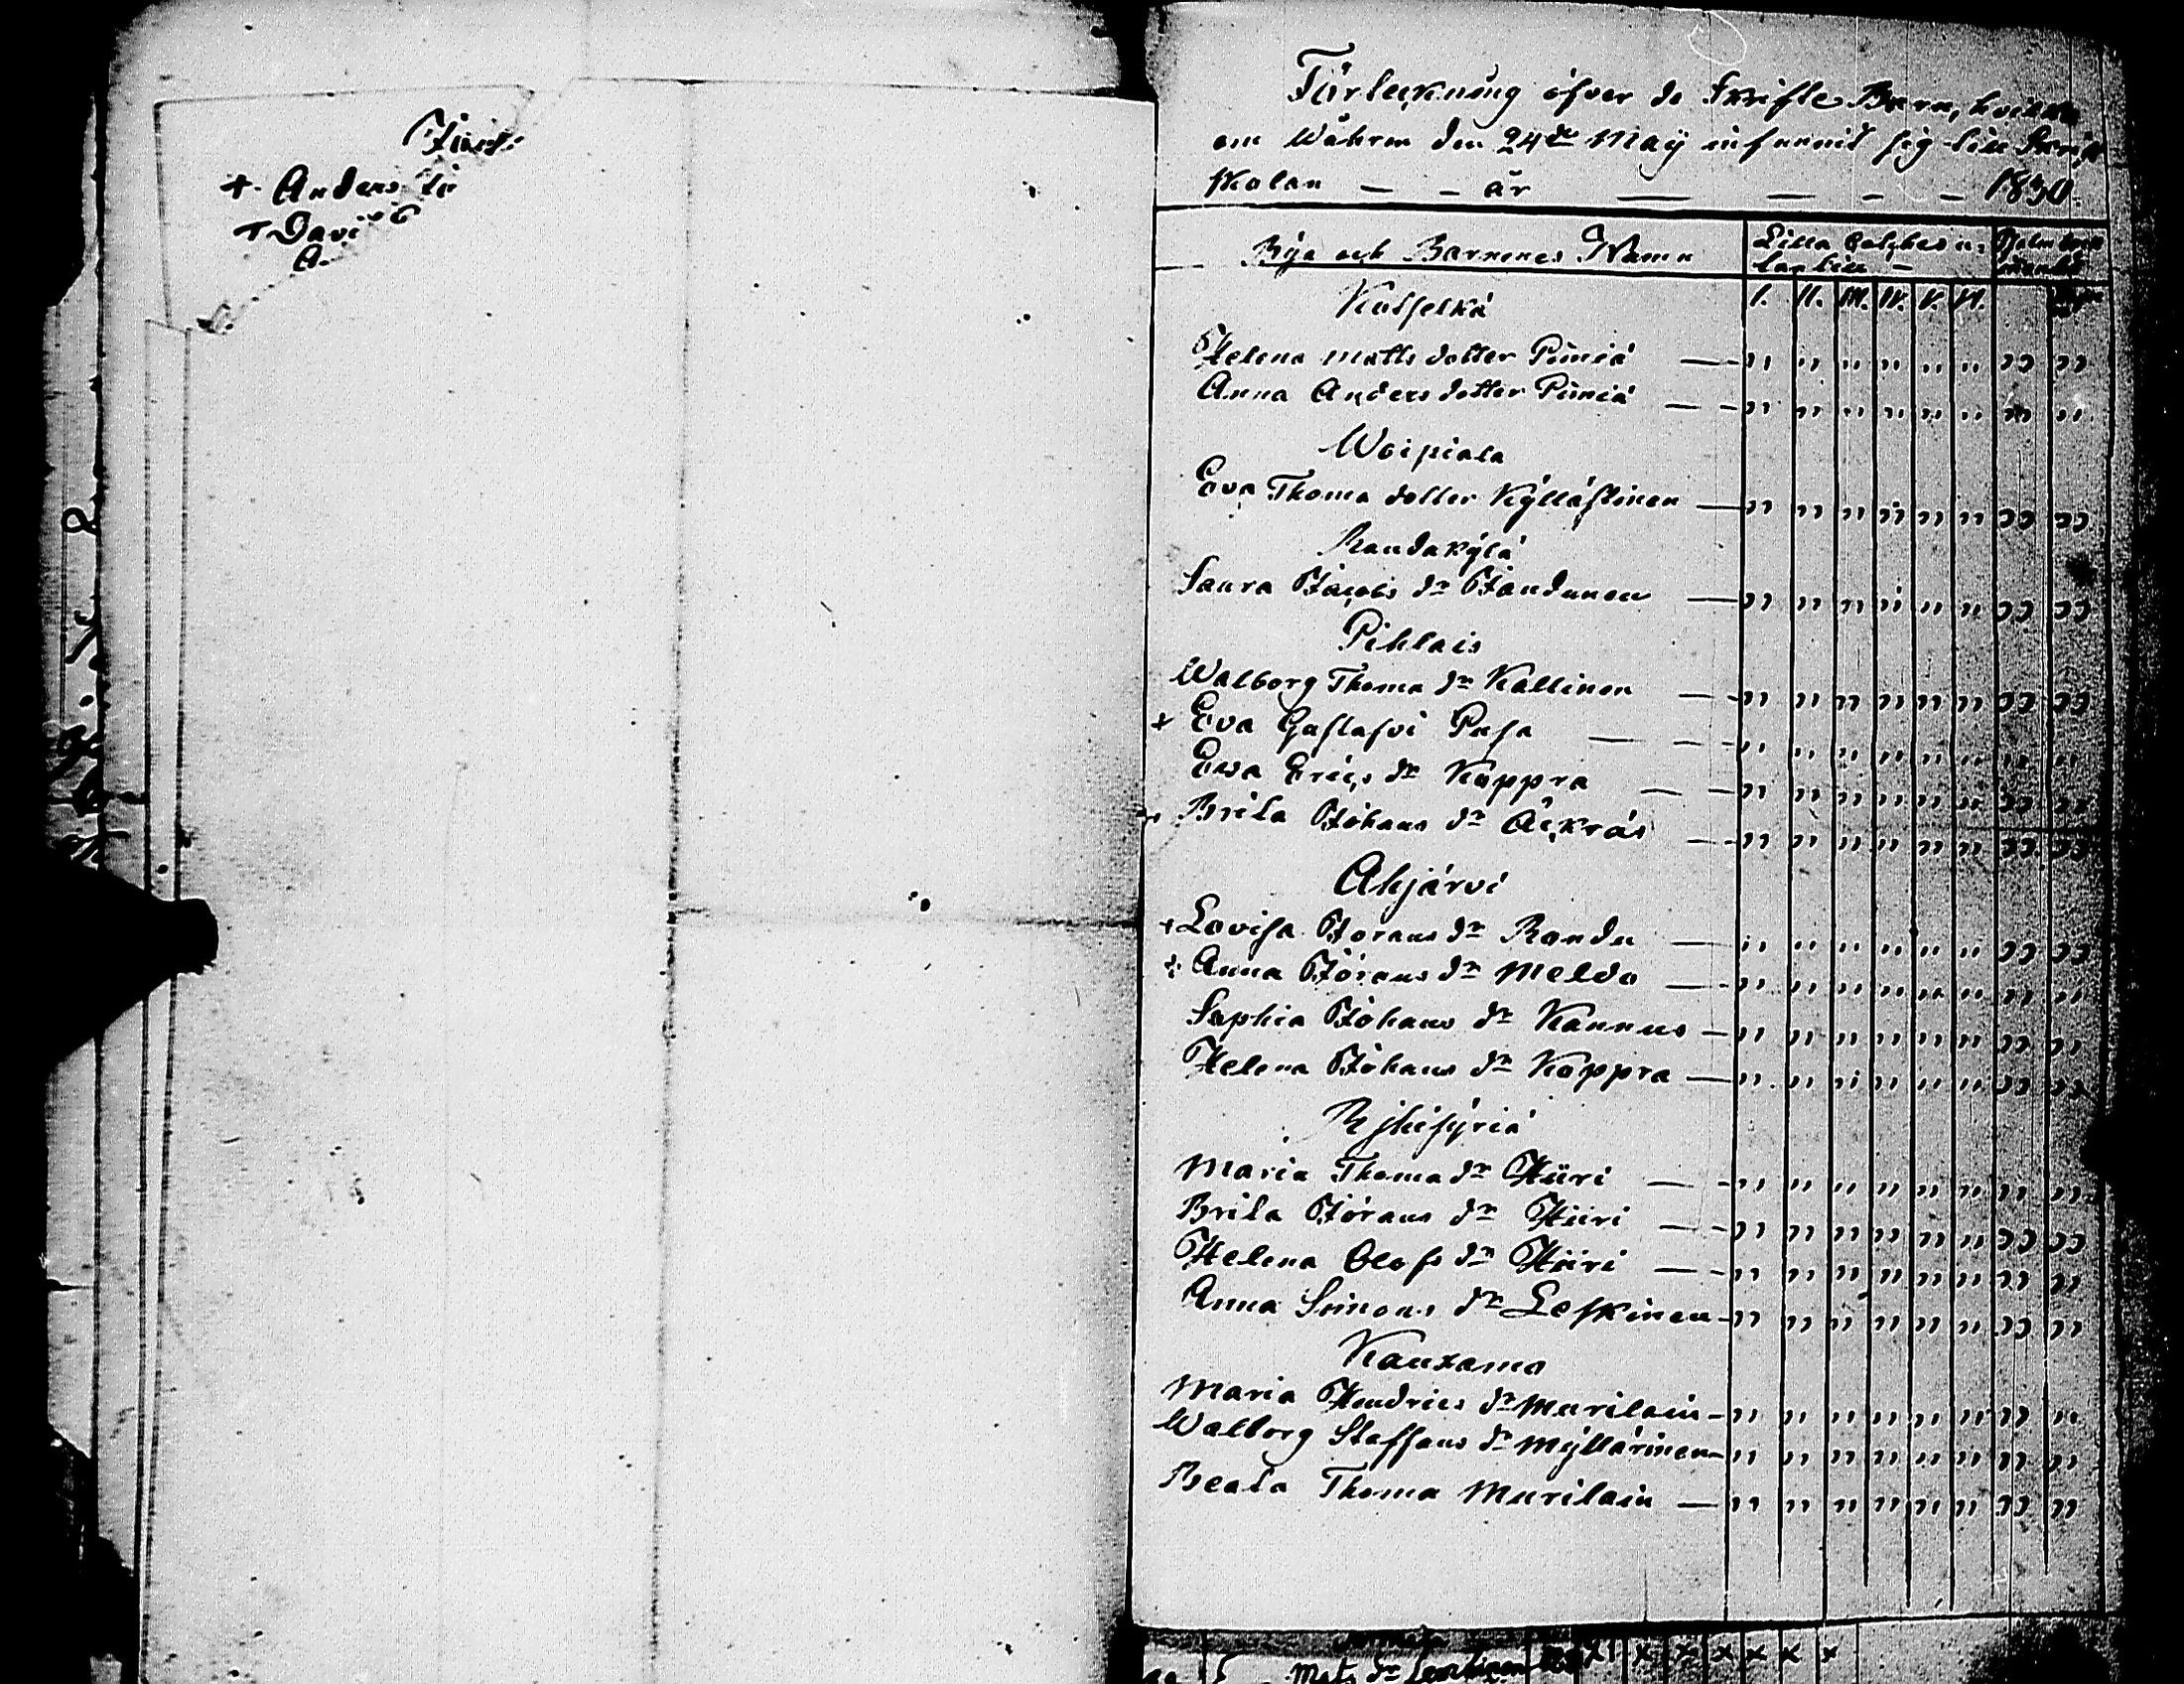 + Anders
+ Davi
Förteckning öfver de Skrifte Barn, hvilka
om Wåhren den 24de Maÿ infunnit sig till Skrift
skolan — — år — — — — 1830.
Bÿa och Barnenes Namn
Lilla
I. II. III. IV. V. VI.
Kolselkä
Helena Matts dotter Pimiä — — " " " " " " " "
Anna Anders dotter Pimiä — — " " " " " " " "
Woipiala
Eva Thoma dotter Kÿllästinen — " " " " " " " "
Randakÿlä
Saura Jacobs dr Jandunen — " " " " " " " "
Pihlais
Walborg Thoma dr Kallinen — — " " " " " " " "
+ Eva Gustafvi Pusa — — — " " " " " " " "
Ewa Erics dr Koppra — — " " " " " " " "
Brita Johans dr Äckräs — — " " " " " " " "
Ahjärvi
+ Lovisa Jörans dr Randu — " " " " " " " "
+ Anna Jörans dr Meldo — — " " " " " " " "
Sophia Johans dr Kannus — " " " " " " " "
Helena Johans dr Koppra — " " " " " " " "
Rjhisÿriä
Maria Thoma dr Hüri — — " " " " " " " "
Brita Jörans dr Hiiri — — " " " " " " " "
Helena Olofs dr Hiiri — — " " " " " " " "
Anna Simons dr Leskinen — " " " " " " " "
Kauxamo
Maria Hendrics dr Murilain — " " " " " " " "
Walborg Staffans dr Mÿllärinen — " " " " " " " "
Beata Thoma Murilain — " " " " " " " "
Mats dr x x x x x x x